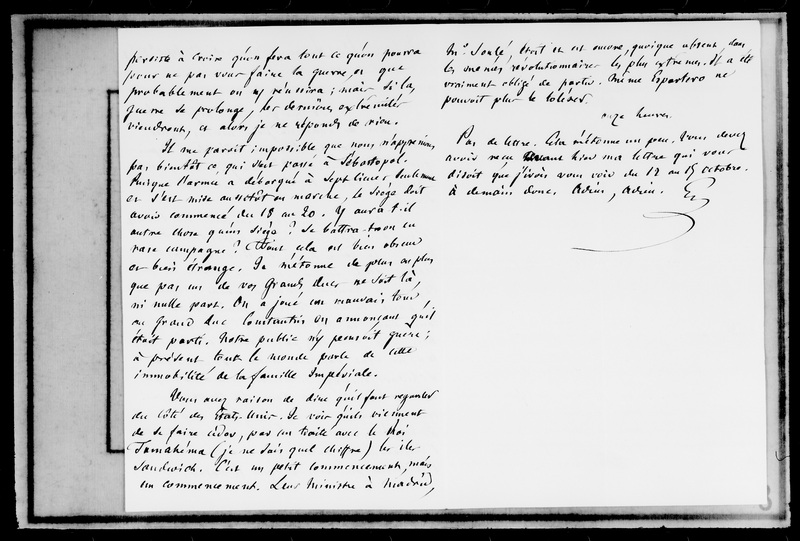 persiste à croire qu'on fera tout ce qu'on pourra
pour ne pas vous faire la guerre, et que
probablement on y réussira ; mais si la
guerre se prolonge, les dernières extrémités
viendront, et alors je ne réponds de rien.
Il me paroit impossible que nous n'apprenions
pas bientôt ce qui s'est passé à Sébastopol.
Puisque l'armée a débarqué à sept lieues seulement
et s'est mise aussitôt en marche, le siège doit
avoir commencé du 18 au 20. Y aura-t-il
autre chose qu'un siège ? Se battra-t-on en
rase campagne ? Tout cela est bien obscur
et bien étrange. Je m'étonne de plus en plus
que pas un de vos Grands Ducs ne soit là,
ni nulle part. On a joué un mauvais tour
au Grand Duc Constantin en annonçant qu'il
était parti. Notre public n'y pensoit guère ;
à présent tout le monde parle de cette
immobilité de la famille Impériale.
Vous avez raison de dire qu'il faut regarder
du côté des Etats-Unis. Je vois qu'ils viennent
de se faire céder, par un traité avec le Roi
Tamahéma (je ne sais quel chiffre) les iles
Sandwich. C'est un petit commencement, mais
un commencement. Leur Ministre à Madrid,
Mr. Soulé, étoit et est encore, quoique absent, dans
les menées révolutionnaires les plus extrêmes. Il a été
vraiment obligé de partir. Même Espartero ne
pouvoit plus le tolérer.
onze heures
Pas de lettre. Cela m'étonne un peu. Vous devez
avoir reçu hier ma lettre qui vous
disoit que j'irois vous voir du 12 au 15 octobre.
à demain donc. Adieu, adieu. G
3